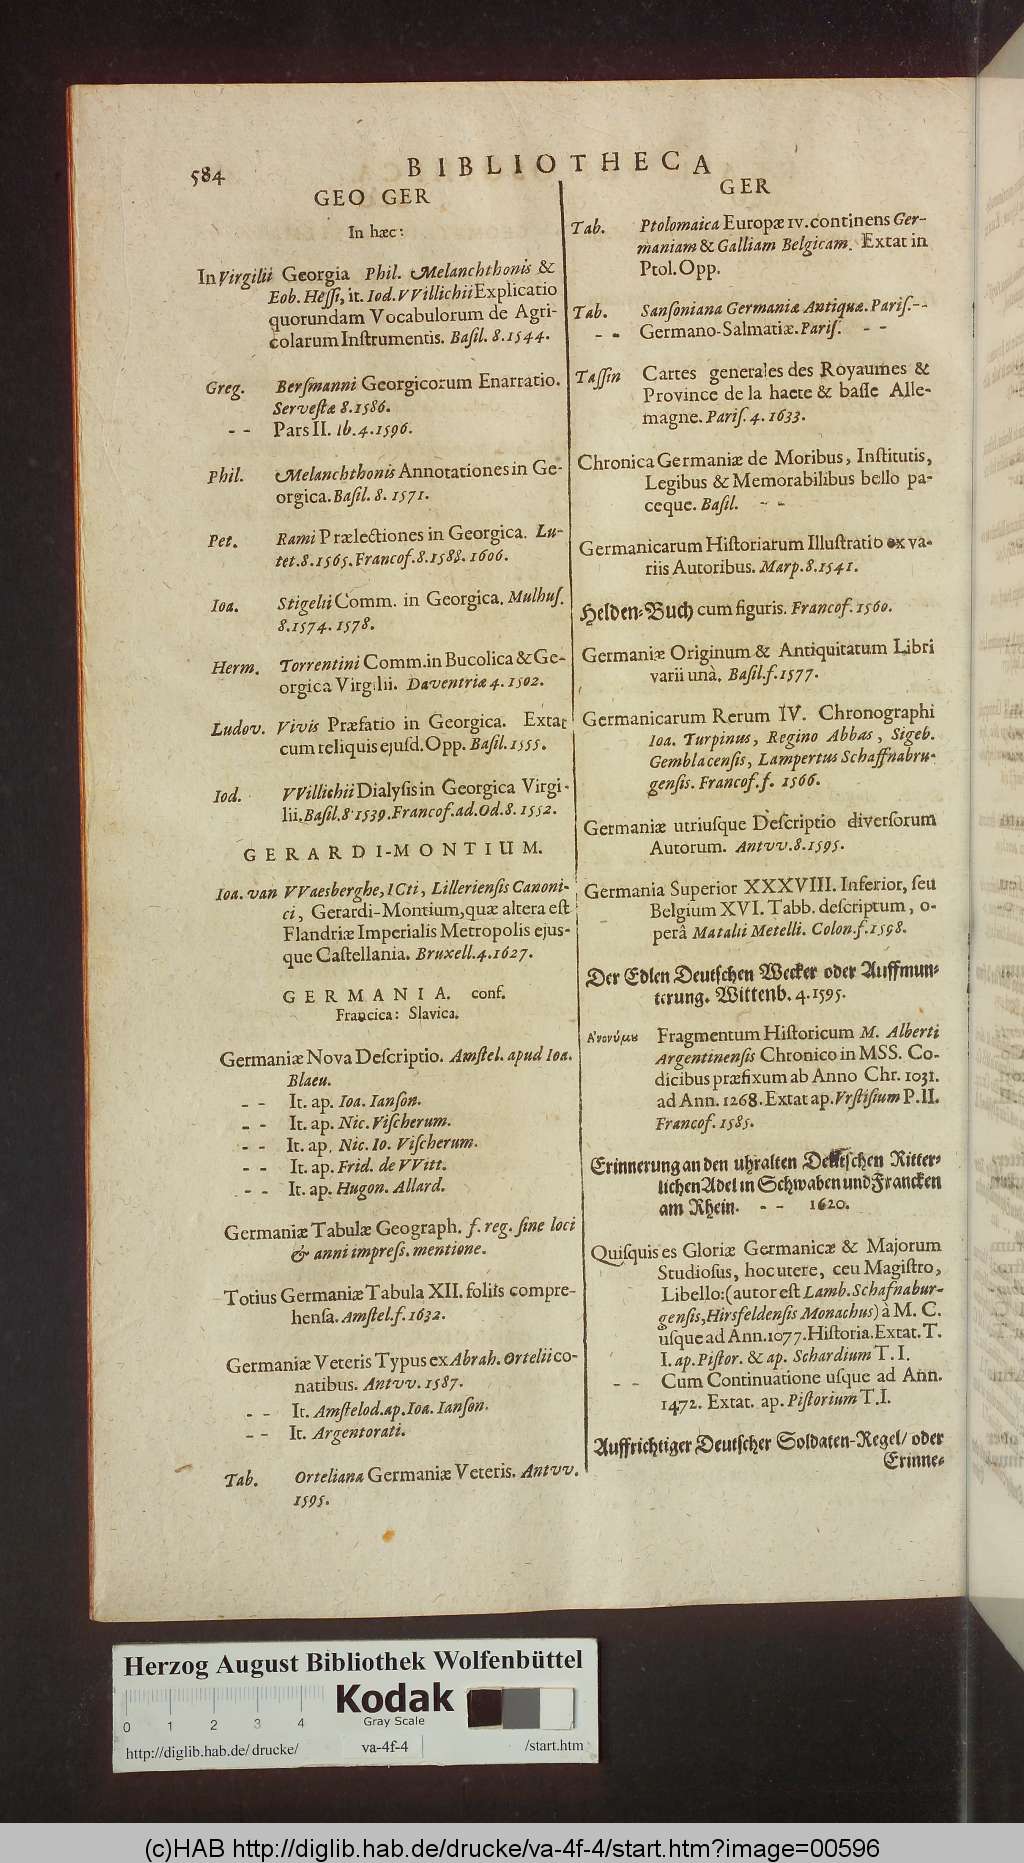 584
BIBLIOTHECA
GEO GER
In hæc:
In Virgilii Georgia Phil. Melanchthonis &
Eob. Hessi, it. Iod. VVillichii Explicatio
quorundam Vocabulorum de Agri-
colarum Instrumentis. Basil. 8. 1544.
Greg. Bersmanni Georgicorum Enarratio.
Servestæ 8. 1586.
- - Pars II. Ib. 4. 1596.
Phil. Melanchthonis Annotationes in Ge-
orgica. Basil. 8. 1571.
Pet. Rami Prælectiones in Georgica. Lu-
tet. 8. 1565. Francof. 8. 1588. 1606.
Ioa. Stigelii Comm. in Georgica. Mulhus.
8. 1574. 1578.
Herm. Torrentini Comm. in Bucolica & Ge-
orgica Virgilii. Daventriæ 4. 1502.
Ludov. Vivis Præfatio in Georgica. Extat
cum reliquis ejusd. Opp. Basil. 1555.
Iod. VVillichii Dialysis in Georgica Virgi-
lii. Basil. 8. 1539. Francof. ad. Od. 8. 1552.
GERARDI-MONTIUM.
Ioa. van VVaesberghe, ICti, Lilleriensis Canoni-
ci, Gerardi-Montium, quæ altera est
Flandriæ Imperialis Metropolis ejus-
que Castellania. Bruxell. 4. 1627.
GERMANIA. conf.
Francica: Slavica.
Germaniæ Nova Descriptio. Amstel. apud Ioa.
Blaeu.
- - It. ap. Ioa. Ianson.
- - It. ap. Nic. Vischerum.
- - It. ap. Nic. Io. Vischerum.
- - It. ap. Frid. de VVitt.
- - It. ap. Hugon. Allard.
Germaniæ Tabulæ Geograph. f. reg. sine loci
& anni impress. mentione.
Totius Germaniæ Tabula XII. foliis compre-
hensa. Amstel. f. 1632.
Germaniæ Veteris Typus ex Abrah. Ortelii co-
natibus. Antvv. 1587.
- - It. Amstelod. ap. Ioa. Ianson.
- - It. Argentorati.
Tab. Orteliana Germaniæ Veteris. Antvv.
1595.
GER
Tab. Ptolomaica Europæ IV. continens Ger-
maniam & Galliam Belgicam. Extat in
Ptol. Opp.
Tab. Sansoniana Germaniæ Antiquæ. Paris. - -
- - Germano-Salmatiæ. Paris. - -
Tassin Cartes generales des Royaumes &
Province de la haete & basse Alle-
magne. Paris. 4. 1633.
Chronica Germaniæ de Moribus, Institutis,
Legibus & Memorabilibus bello pa-
ceque. Basil. - -
Germanicarum Historiarum Illustratio ex va-
riis Autoribus. Marp. 8. 1541.
Helden-Buch cum figuris. Francof. 1560.
Germaniæ Originum & Antiquitatum Libri
varii unà. Basil. f. 1577.
Germanicarum Rerum IV. Chronographi
Ioa. Turpinus, Regino Abbas, Sigeb.
Gemblacensis, Lampertus Schaffnabru-
gensis. Francof. f. 1566.
Germaniæ utriusque Descriptio diversorum
Autorum. Antvv. 8. 1595.
Germania Superior XXXVIII. Inferior, seu
Belgium XVI. Tabb. descriptum, o-
perâ Matalii Metelli. Colon. f. 1598.
Der Edlen Deutschen Wecker oder Auffmun-
terung. Wittenb. 4. 1595.
Ἀνονύμου Fragmentum Historicum M. Alberti
Argentinensis Chronico in MSS. Co-
dicibus præfixum ab Anno Chr. 1031.
ad Ann. 1268. Extat ap. Vrstisium P. II.
Francof. 1585.
Erinnerung an den uhralten Deutschen Ritter-
lichen Adel in Schwaben und Francken
am Rhein. - - 1620.
Quisquis es Gloriæ Germanicæ & Majorum
Studiosus, hoc utere, ceu Magistro,
Libello: (autor est Lamb. Schafnabur-
gensis, Hirsfeldensis Monachus) à M. C.
usque ad Ann. 1077. Historia. Extat. T.
I. ap. Pistor. & ap. Schardium T. I.
- - Cum Continuatione usque ad Ann.
1472. Extat. ap. Pistorium T. I.
Auffrichtiger Deutscher Soldaten-Regel / oder
Erinne-
Herzog August Bibliothek Wolfenbüttel
Kodak
Gray Scale
0 1 2 3 4
http://diglib.hab.de/drucke/ va-4f-4 /start.htm
(c)HAB http://diglib.hab.de/drucke/va-4f-4/start.htm?image=00596